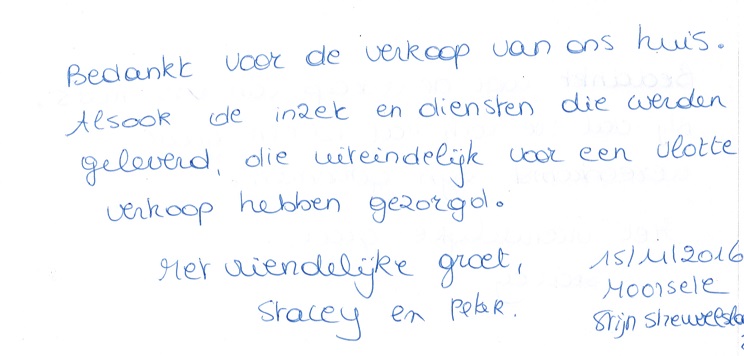 Bedankt voor de verkoop van ons huis.
Alsook de inzet en diensten die werden
geleverd, die uiteindelijk voor een vlotte
verkoop hebben gezorgd.
Met vriendelijke groet,
Stacey en Peter.
15/11/2016
Moorsele
Stijn